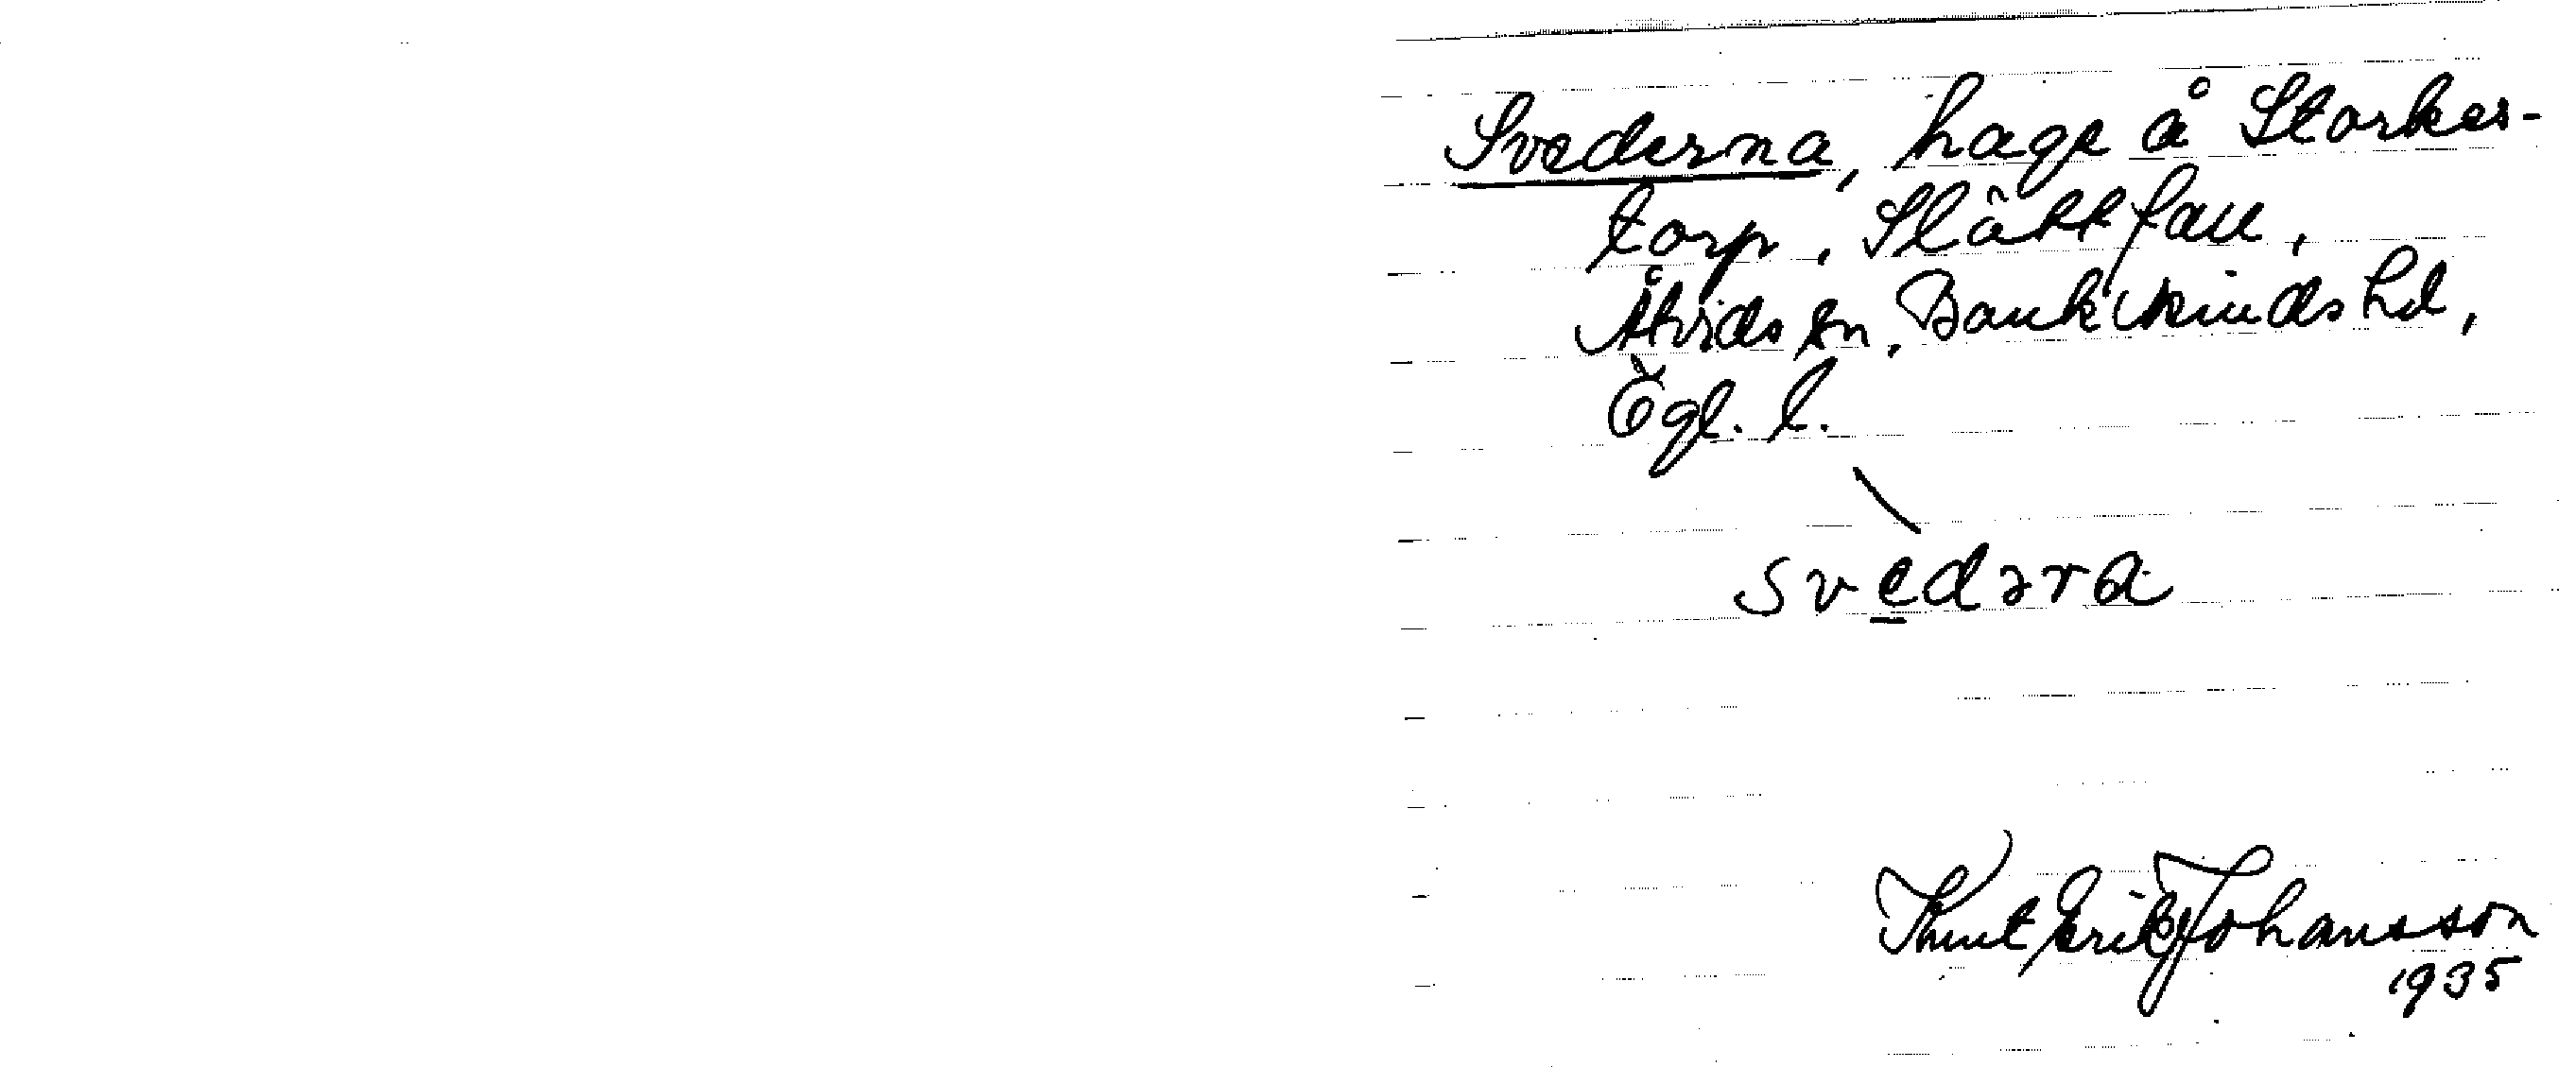 Svederna, hage å Storker-
torp, Slättfall,
Åtvids sn, Bankekinds hd,
Ögl. l.
svedərɑ
Knut Erik Johansson
1935